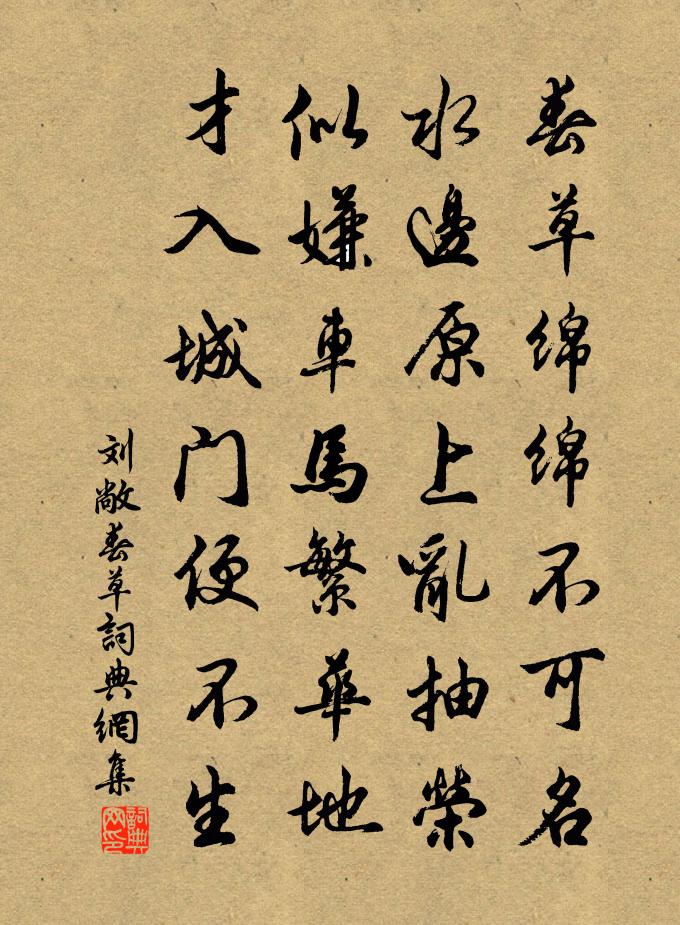 春草绵绵不可名
水邊原上亂抽榮
似嫌車馬繁華地
才入城门便不生
刘敞春草詞典網集
詞典网印